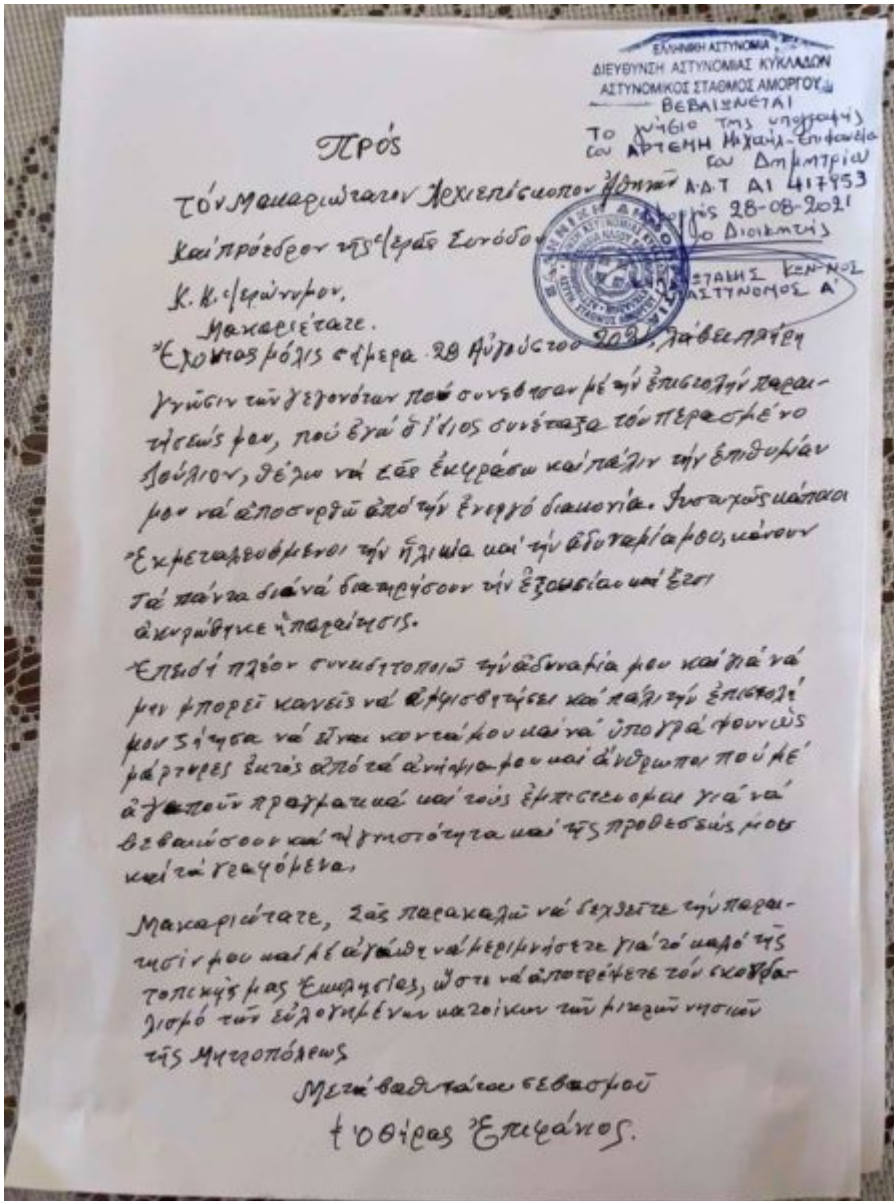 ΕΛΛΗΝΙΚΗ ΑΣΤΥΝΟΜΙΑ
ΔΙΕΥΘΥΝΣΗ ΑΣΤΥΝΟΜΙΑΣ ΚΥΚΛΑΔΩΝ
ΑΣΤΥΝΟΜΙΚΟΣ ΣΤΑΘΜΟΣ ΑΜΟΡΓΟΥ
ΒΕΒΑΙΩΝΕΤΑΙ
Το γνήσιο της υπογραφής
του ΑΡΤΕΜΗ Μιχαήλ-Επιφανείο
του Δημητρίου
Α.Δ.Τ ΑΙ 417953
28-08-2021
ο Διοικητής
ΚΩΝ-ΝΟΣ
ΑΣΤΥΝΟΜΟΣ Α'
Πρός
τόν Μακαριώτατον Ἀρχιεπίσκοπον Ἀθηνῶν
καί πρόεδρον τῆς Ἱερᾶς Συνόδου
Κ.Κ. Ἱερώνυμον,
Μακαριώτατε.
Ἔχοντας μόλις σήμερα 28 Αὐγούστου 2021, λάβει πλήρη
γνῶσιν τῶν γεγονότων πού συνέβησαν μέ τήν ἐπιστολήν παραι-
τήσεώς μου, πού ἐγώ ὁ ἴδιος συνέταξα τόν περασμένο
Ἰούλιον, θέλω νά Σᾶς ἐκφράσω καί πάλιν τήν ἐπιθυμίαν
μου νά ἀποσυρθῶ ἀπό τήν ἐνεργό διακονία. Δυστυχῶς κάποιοι
Ἐκμεταλευόμενοι τήν ἡλικία καί τήν ἀδυναμία μου, κάνουν
τά πάντα διά νά διατηρήσουν τήν ἐξουσίαν καί ἔτσι
ἀκυρώθηκε ἡ παραίτησις.
Ἐπειδή πλέον συνειδητοποιῶ τήν ἀδυναμία μου καί γιά νά
μην μπορεῖ κανείς νά ἀμφισβητήσει καί πάλι τήν ἐπιστολή
μου ζήτησα νά εἶναι κοντά μου καί νά ὑπογράψουν ὡς
μάρτυρες ἐκτός ἀπό τά ἀνήψια μου καί ἄνθρωποι πού μέ
ἀγαποῦν πραγματικά καί τούς ἐμπιστεύομαι γιά νά
βεβαιώσουν καί τή γνησιότητα καί τῆς προθέσεώς μου
καί τά γραφόμενα.
Μακαριώτατε, Σᾶς παρακαλῶ νά δεχθεῖτε τήν παραί-
τησίν μου καί μέ ἀγάπη νά μεριμνήσετε γιά τό καλό τῆς
τοπικῆς μας Ἐκκλησίας, ὥστε νά ἀποτρέψετε τόν σκανδα-
λισμό τῶν εὐλογημένων κατοίκων τῶν μικρῶν νησιῶν
τῆς Μητροπόλεως
Μετά βαθυτάτου σεβασμοῦ
† Ὁ Θήρας Ἐπιφάνιος.